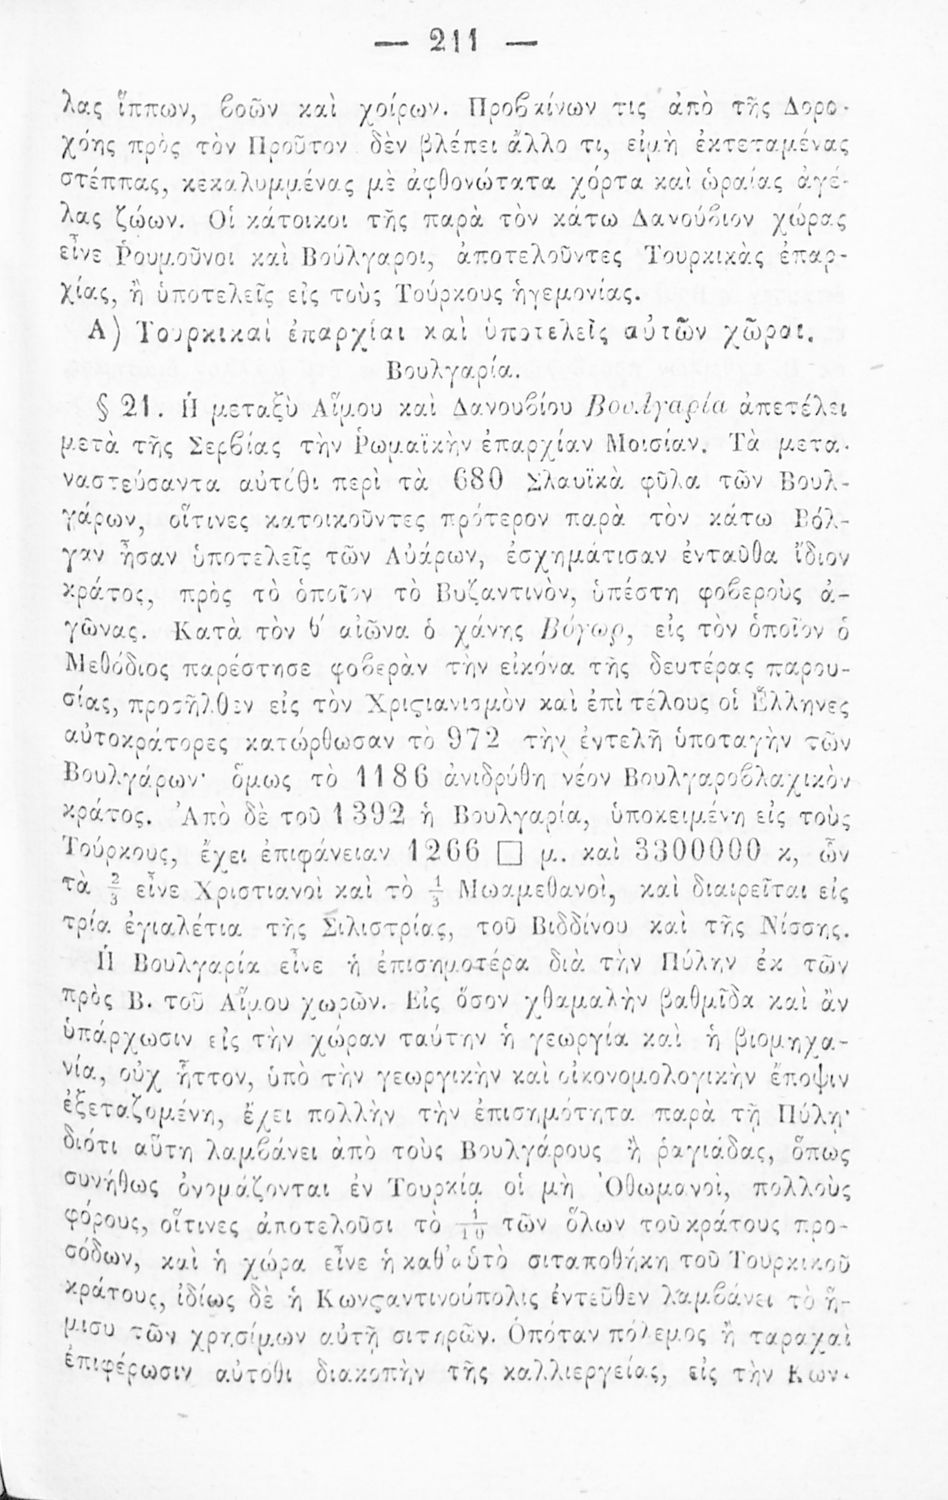 — 211 —
λας ἵππων, βοῶν καὶ χοίρων. Προβαίνων τις ἀπὸ τῆς Δορο-
χόης πρὸς τὸν Προῦτον δὲν βλέπει ἄλλο τι, εἰμὴ ἐκτεταμένας
στέππας, κεκαλυμμένας μὲ ἀφθονώτατα χόρτα καὶ ὡραίας ἀγέ-
λας ζώων. Οἱ κάτοικοι τῆς παρὰ τὸν κάτω Δανούβιον χώρας
εἶνε Ῥουμοῦνοι καὶ Βούλγαροι, ἀποτελοῦντες Τουρκικὰς ἐπαρ-
χίας, ἢ ὑποτελεῖς εἰς τοὺς Τούρκους ἡγεμονίας.
Α) Τουρκικαὶ ἐπαρχίαι καὶ ὑποτελεῖς αὐτῶν χῶραι.
Βουλγαρία.
§ 21. Ἡ μεταξὺ Αἵμου καὶ Δανουβίου Βουλγαρία ἀπετέλει
μετὰ τῆς Σερβίας τὴν Ῥωμαϊκὴν ἐπαρχίαν Μοισίαν. Τὰ μετα-
ναστεύσαντα αὐτόθι περὶ τὰ 680 Σλαυϊκὰ φῦλα τῶν Βουλ-
γάρων, οἵτινες κατοικοῦντες πρότερον παρὰ τὸν κάτω Βόλ-
γαν ἦσαν ὑποτελεῖς τῶν Αὐάρων, ἐσχημάτισαν ἐνταῦθα ἴδιον
κράτος, πρὸς τὸ ὁποῖον τὸ Βυζαντινὸν, ὑπέστη φοβεροὺς ἀ-
γῶνας. Κατὰ τὸν θ΄ αἰῶνα ὁ χάνης Βόγωρ, εἰς τὸν ὁποῖον ὁ
Μεθόδιος παρέστησε φοβερὰν τὴν εἰκόνα τῆς δευτέρας παρου-
σίας, προσῆλθεν εἰς τὸν Χριϛιανισμὸν καὶ ἐπὶ τέλους οἱ Ἕλληνες
αὐτοκράτορες κατώρθωσαν τὸ 972 τὴν ἐντελῆ ὑποταγὴν τῶν
Βουλγάρων· ὅμως τὸ 1186 ἀνιδρύθη νέον Βουλγαροβλαχικὸν
κράτος. Ἀπὸ δὲ τοῦ 1392 ἡ Βουλγαρία, ὑποκειμένη εἰς τοὺς
Τούρκους, ἔχει ἐπιφάνειαν 1266 □ μ. καὶ 3300000 κ, ὧν
τὰ ⅔ εἶνε Χριστιανοὶ καὶ τὸ ⅓ Μωαμεθανοὶ, καὶ διαιρεῖται εἰς
τρία ἐγιαλέτια τῆς Σιλιστρίας, τοῦ Βιδδίνου καὶ τῆς Νίσσης.
Ἡ Βουλγαρία εἶνε ἡ ἐπισημοτέρα διὰ τὴν Πύλην ἐκ τῶν
πρὸς Β. τοῦ Αἵμου χωρῶν. Εἰς ὅσον χθαμαλὴν βαθμῖδα καὶ ἂν
ὑπάρχωσιν εἰς τὴν χώραν ταύτην ἡ γεωργία καὶ ἡ βιομηχα-
νία, οὐχ ἧττον, ὑπὸ τὴν γεωργικὴν καὶ οἰκονομολογικὴν ἔποψιν
ἐξεταζομένη, ἔχει πολλὴν τὴν ἐπισημότητα παρὰ τῇ Πύλῃ·
διότι αὕτη λαμβάνει ἀπὸ τοὺς Βουλγάρους ἢ ῥαγιάδας, ὅπως
συνήθως ὀνομάζονται ἐν Τουρκίᾳ οἱ μὴ Ὀθωμανοὶ, πολλοὺς
φόρους, οἵτινες ἀποτελοῦσι τὸ 1/10 τῶν ὅλων τοῦ κράτους προ-
σόδων, καὶ ἡ χώρα εἶνε ἡ καθ᾽αὑτὸ σιταποθήκη τοῦ Τουρκικοῦ
κράτους, ἰδίως δὲ ἡ Κωνϛαντινούπολις ἐντεῦθεν λαμβάνει τὸ ἥ-
μισυ τῶν χρησίμων αὐτῇ σιτηρῶν. Ὁπόταν πόλεμος ἢ ταραχαὶ
ἐπιφέρωσιν αὐτόθι διακοπὴν τῆς καλλιεργείας, εἰς τὴν Κων-